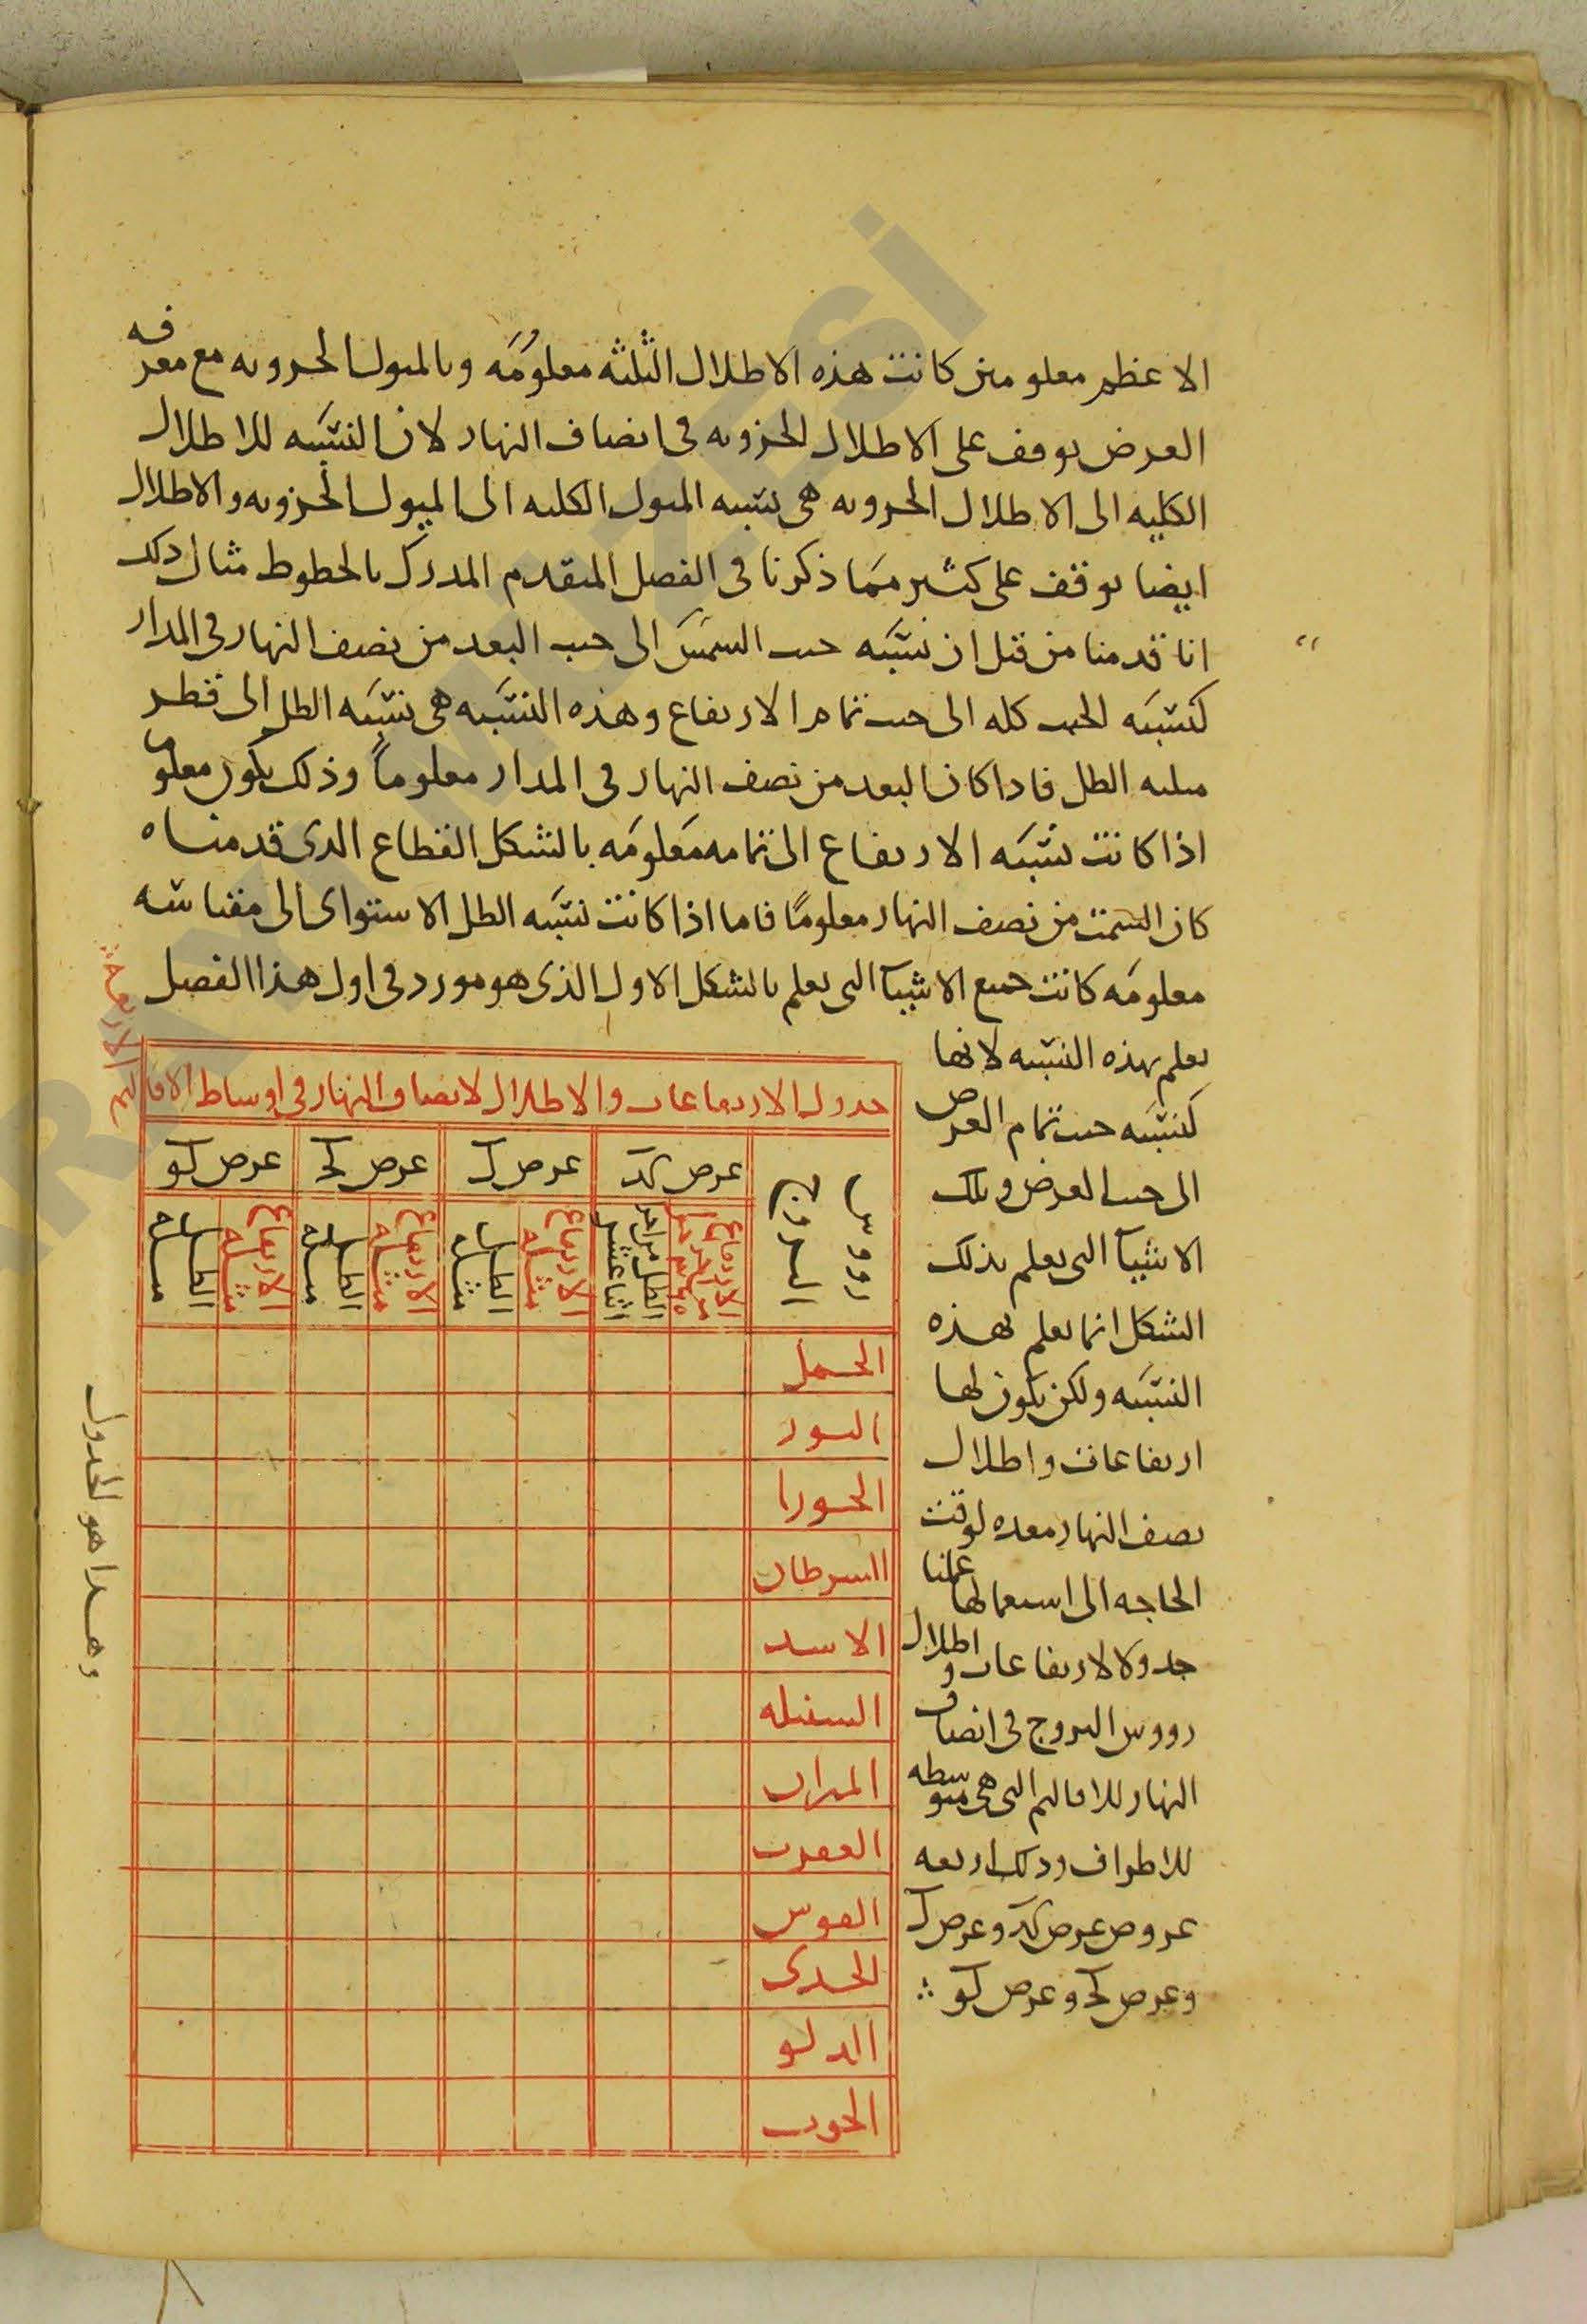 الاعظم معلومين كانت هذه الاظلال الثلثه معلومه وبالميول الجزويه مع معرفه
العرض يوقف على الاظلال الجزويه فى انصاف النهار لان النسبه للاظلال
الكليه الى الاظلال الجزويه هى نسبه الميول الكليه الى الميول الجزويه والاظلال
ايضا يوقف على كثير مما ذكرنا فى الفصل المتقدم المدرك بالخطوط مثال ذلك
انا قدمنا من قبل ان نسبه جيب السمت الى جيب البعد من نصف النهار فى المدار
كنسبه الجيب كله الى جيب تمام الارتفاع وهذه النسبه هى نسبه الظل الى قطر
مثلثه الظل فاذا كان البعد من نصف النهار فى المدار معلوماً وذلك يكون معلوما
اذا كانت نسبه الارتفاع الى تمامه معلومه بالشكل القطاع الذى قدمناه
كان السمت من نصف النهار معلومًا فاما اذا كانت نسبه الظل الاستواى الى مقياسه
معلومه كانت جميع الاشيآ التى يعلم بالشكل الاول الذى هو مورد فى اول هذا الفصل
يعلم بهذه النسبه لانها
كنسبه جيب تمام العرض
الى جيب العرض وتلك
الاشيآ التى يعلم بذلك
الشكل انما يعلم بهذه
النسبه ولكن يكون لها
ارتفاعات واظلال
نصف النهار معده لوقت
الحاجه الى استعمالها عملنا
جدولا لارتفاعات واظلال
رووس البروج فى انصاف
النهار للاقاليم التى هى متوسطه
للاطراف وذلك اربعه
عروض عرض كد وعرض ل
وعرض لح وعرض لو
جدول الارتفاعات والاظلال لانصاف النهار فى اوساط الاقاليم الاربعه
رووس البروج
عرض كد
عرض ل
عرض لح
عرض لو
الارتفاع
الظل من اجزا اثنا عشر
الارتفاع مثله
الظل مثله
الارتفاع مثله
الظل مثله
الارتفاع مثله
الظل مثله
الحمل
الثور
الجوزا
السرطان
الاسد
السنبله
الميزان
العقرب
القوس
الجدى
الدلو
الحوت
وهذا هو الجدول